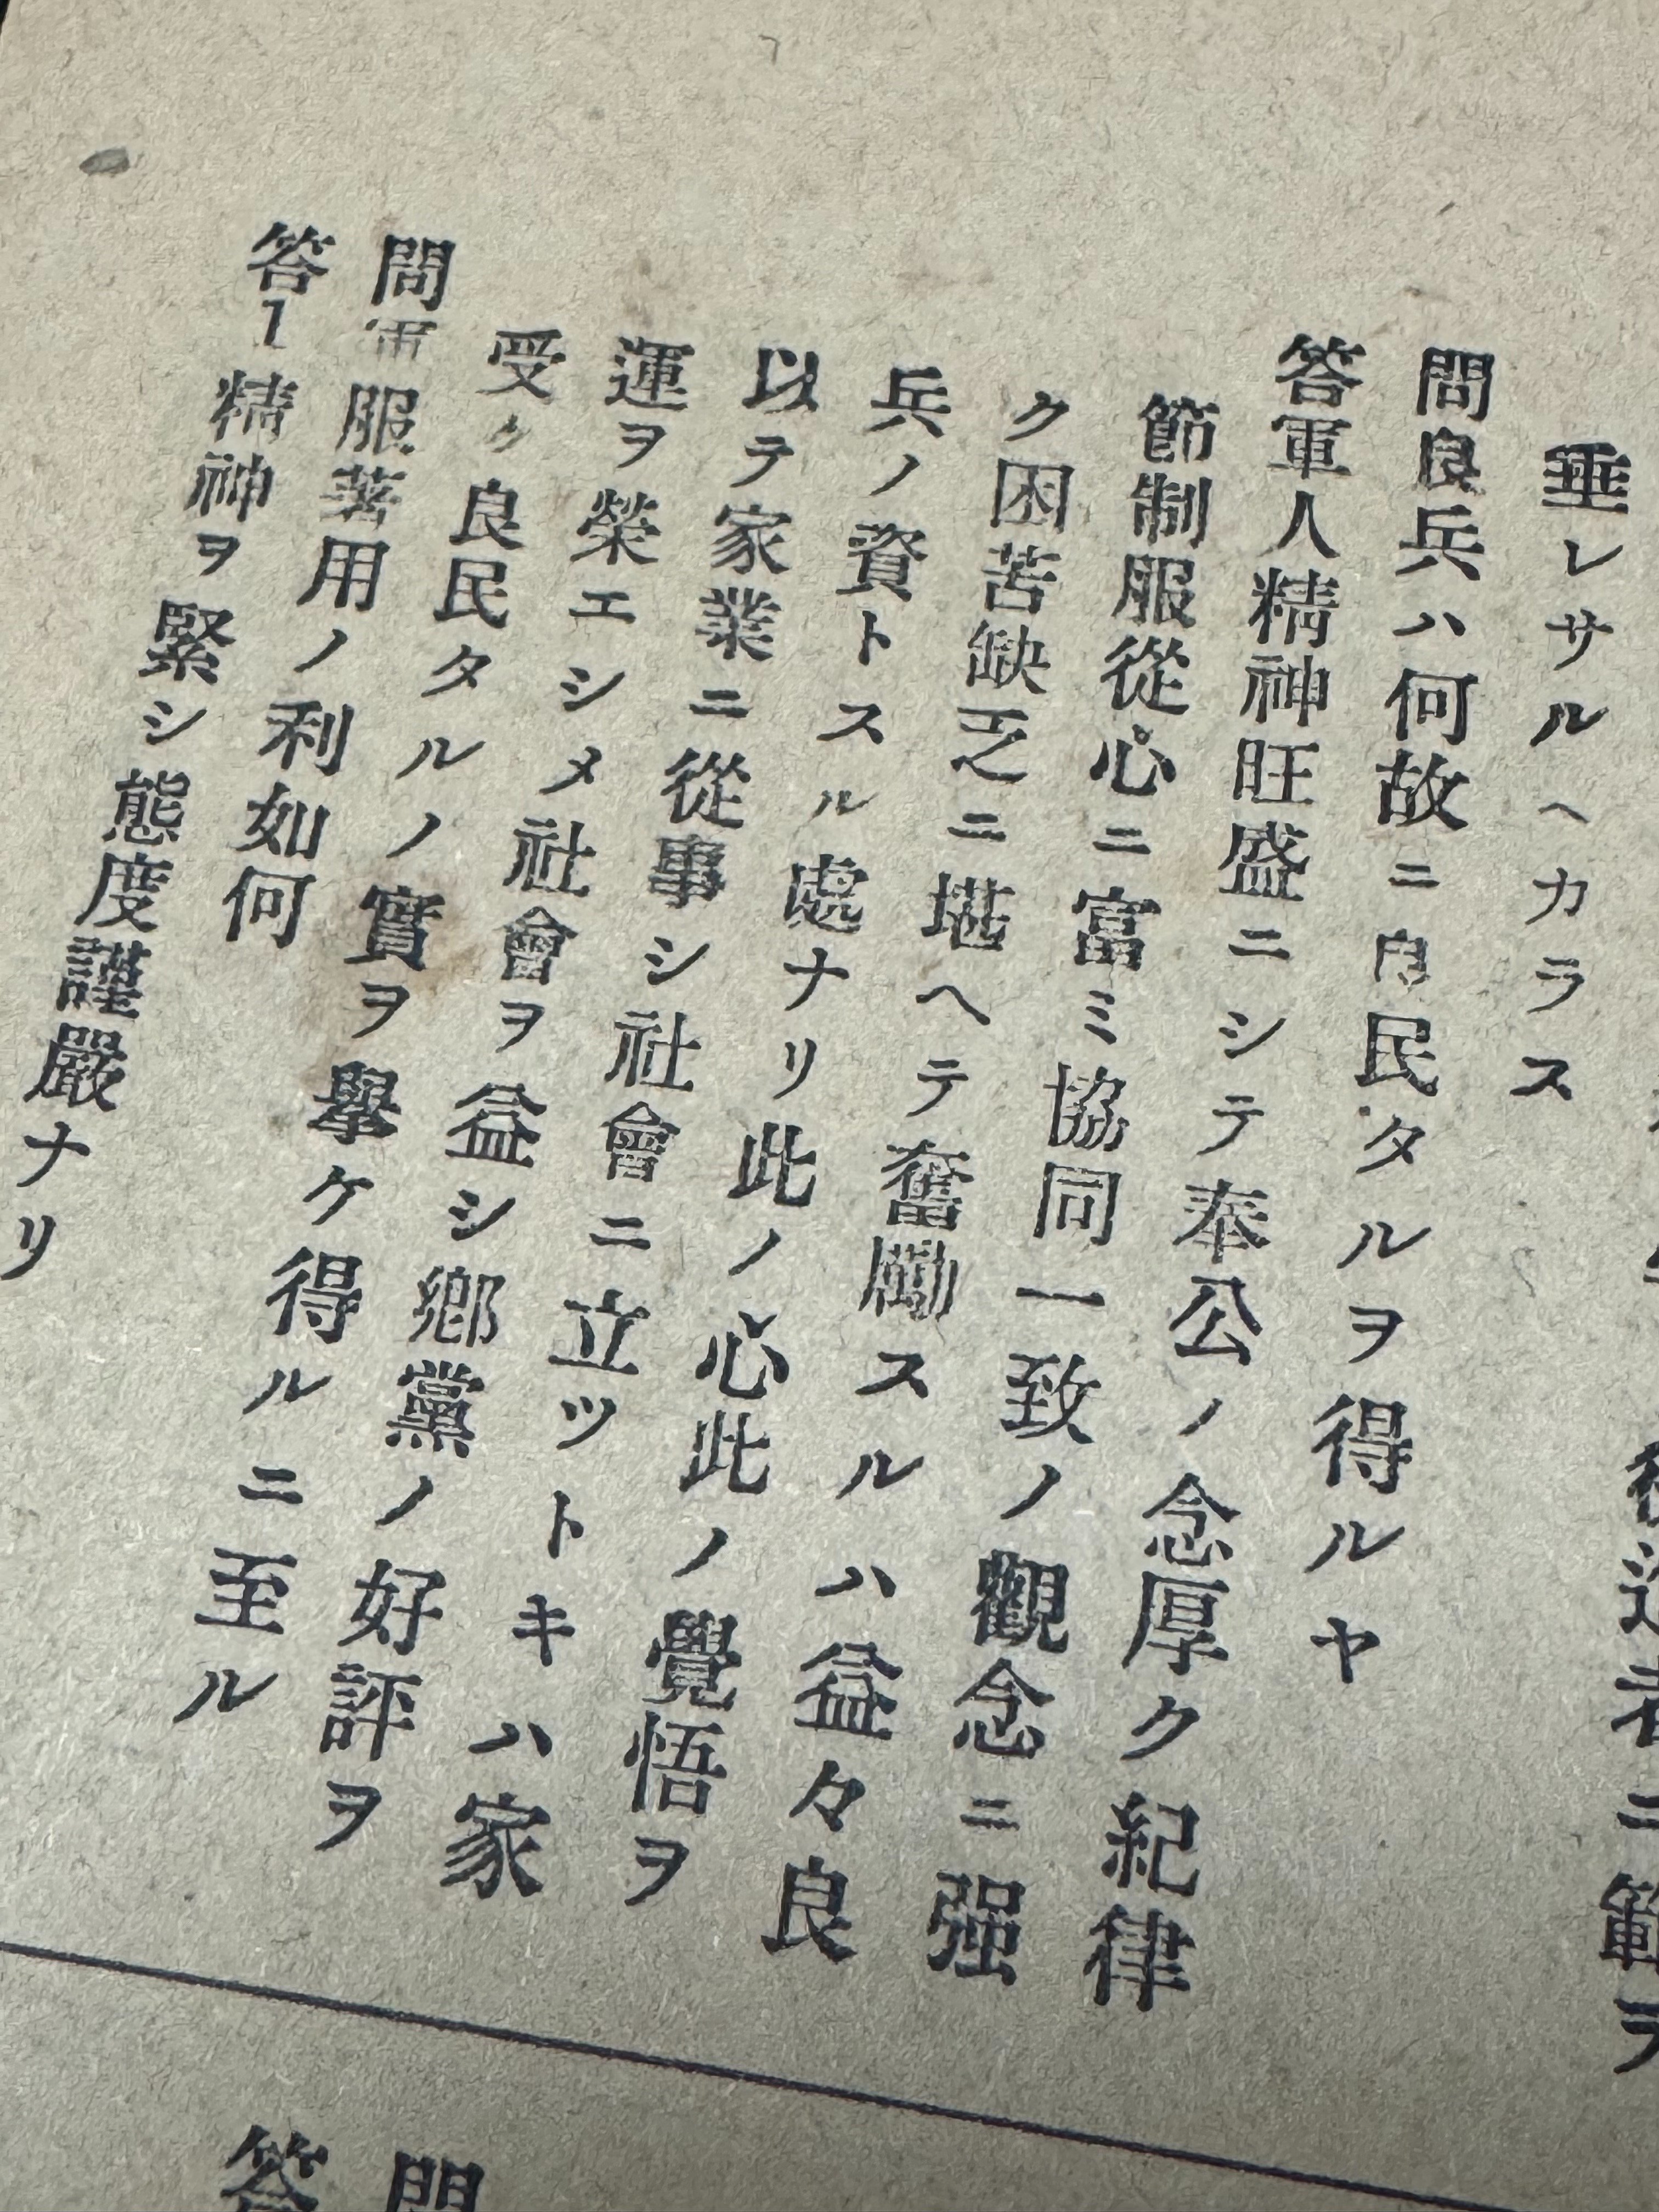 後進者ニ範ヲ
垂レサルヘカラス
問良兵ハ何故ニ良民タルヲ得ルヤ
答軍人精神旺盛ニシテ奉公ノ念厚ク紀律
節制服從心ニ富ミ協同一致ノ觀念ニ强
ク困苦缺乏ニ堪ヘテ奮勵スルハ益々良
兵ノ資トスル處ナリ此ノ心此ノ覺悟ヲ
以テ家業ニ從事シ社會ニ立ツトキハ家
運ヲ榮エシメ社會ヲ益シ鄕黨ノ好評ヲ
受ク良民タルノ實ヲ擧ケ得ルニ至ル
問軍服著用ノ利如何
答1精神ヲ緊シ態度謹嚴ナリ
問
答